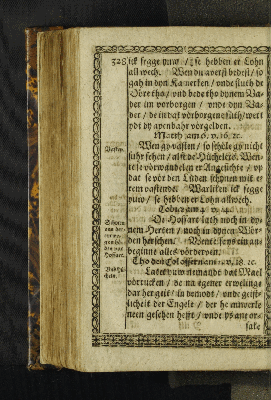 328 ick segge yuw / se hebben er Lohn
all wech. Wen du averst bedest / so
gah in dyn Kamerken / unde sluth de
Döre tho / und bede tho dynem Va-
der im vorborgen / unde dyn Va-
der / de in dat vorborgene süth / wert
ydt dy apenbahr vorgelden.
Matth. am 6. v. 16. 2c.
Vasten.
Wen gy vasten / so schöle gy nicht
suhr sehen / alse de Hüchelers. Wen-
te se vorwandelen er Angesichte / up
dat se vör den Lüden schynen mit e-
rem vastende. Warliken ick segge
yuw / se hebben er Lohn allwech.
De Hoffart lath noch in dy-
nem Herten / noch in dynen Wör-
den herschen. Wente se ys ein an-
beginne alles vörderven.
Hoffart.
Tho den Colossern am 2. v. 18. 2c.
Latet yuw nemande dat Mael
vörrücken / de na egener erwelinge
dar her geit / in demodt / unde geist-
licheit der Engele / der he nuwerle
neen gesehen hefft / unde ys ane or-
sake